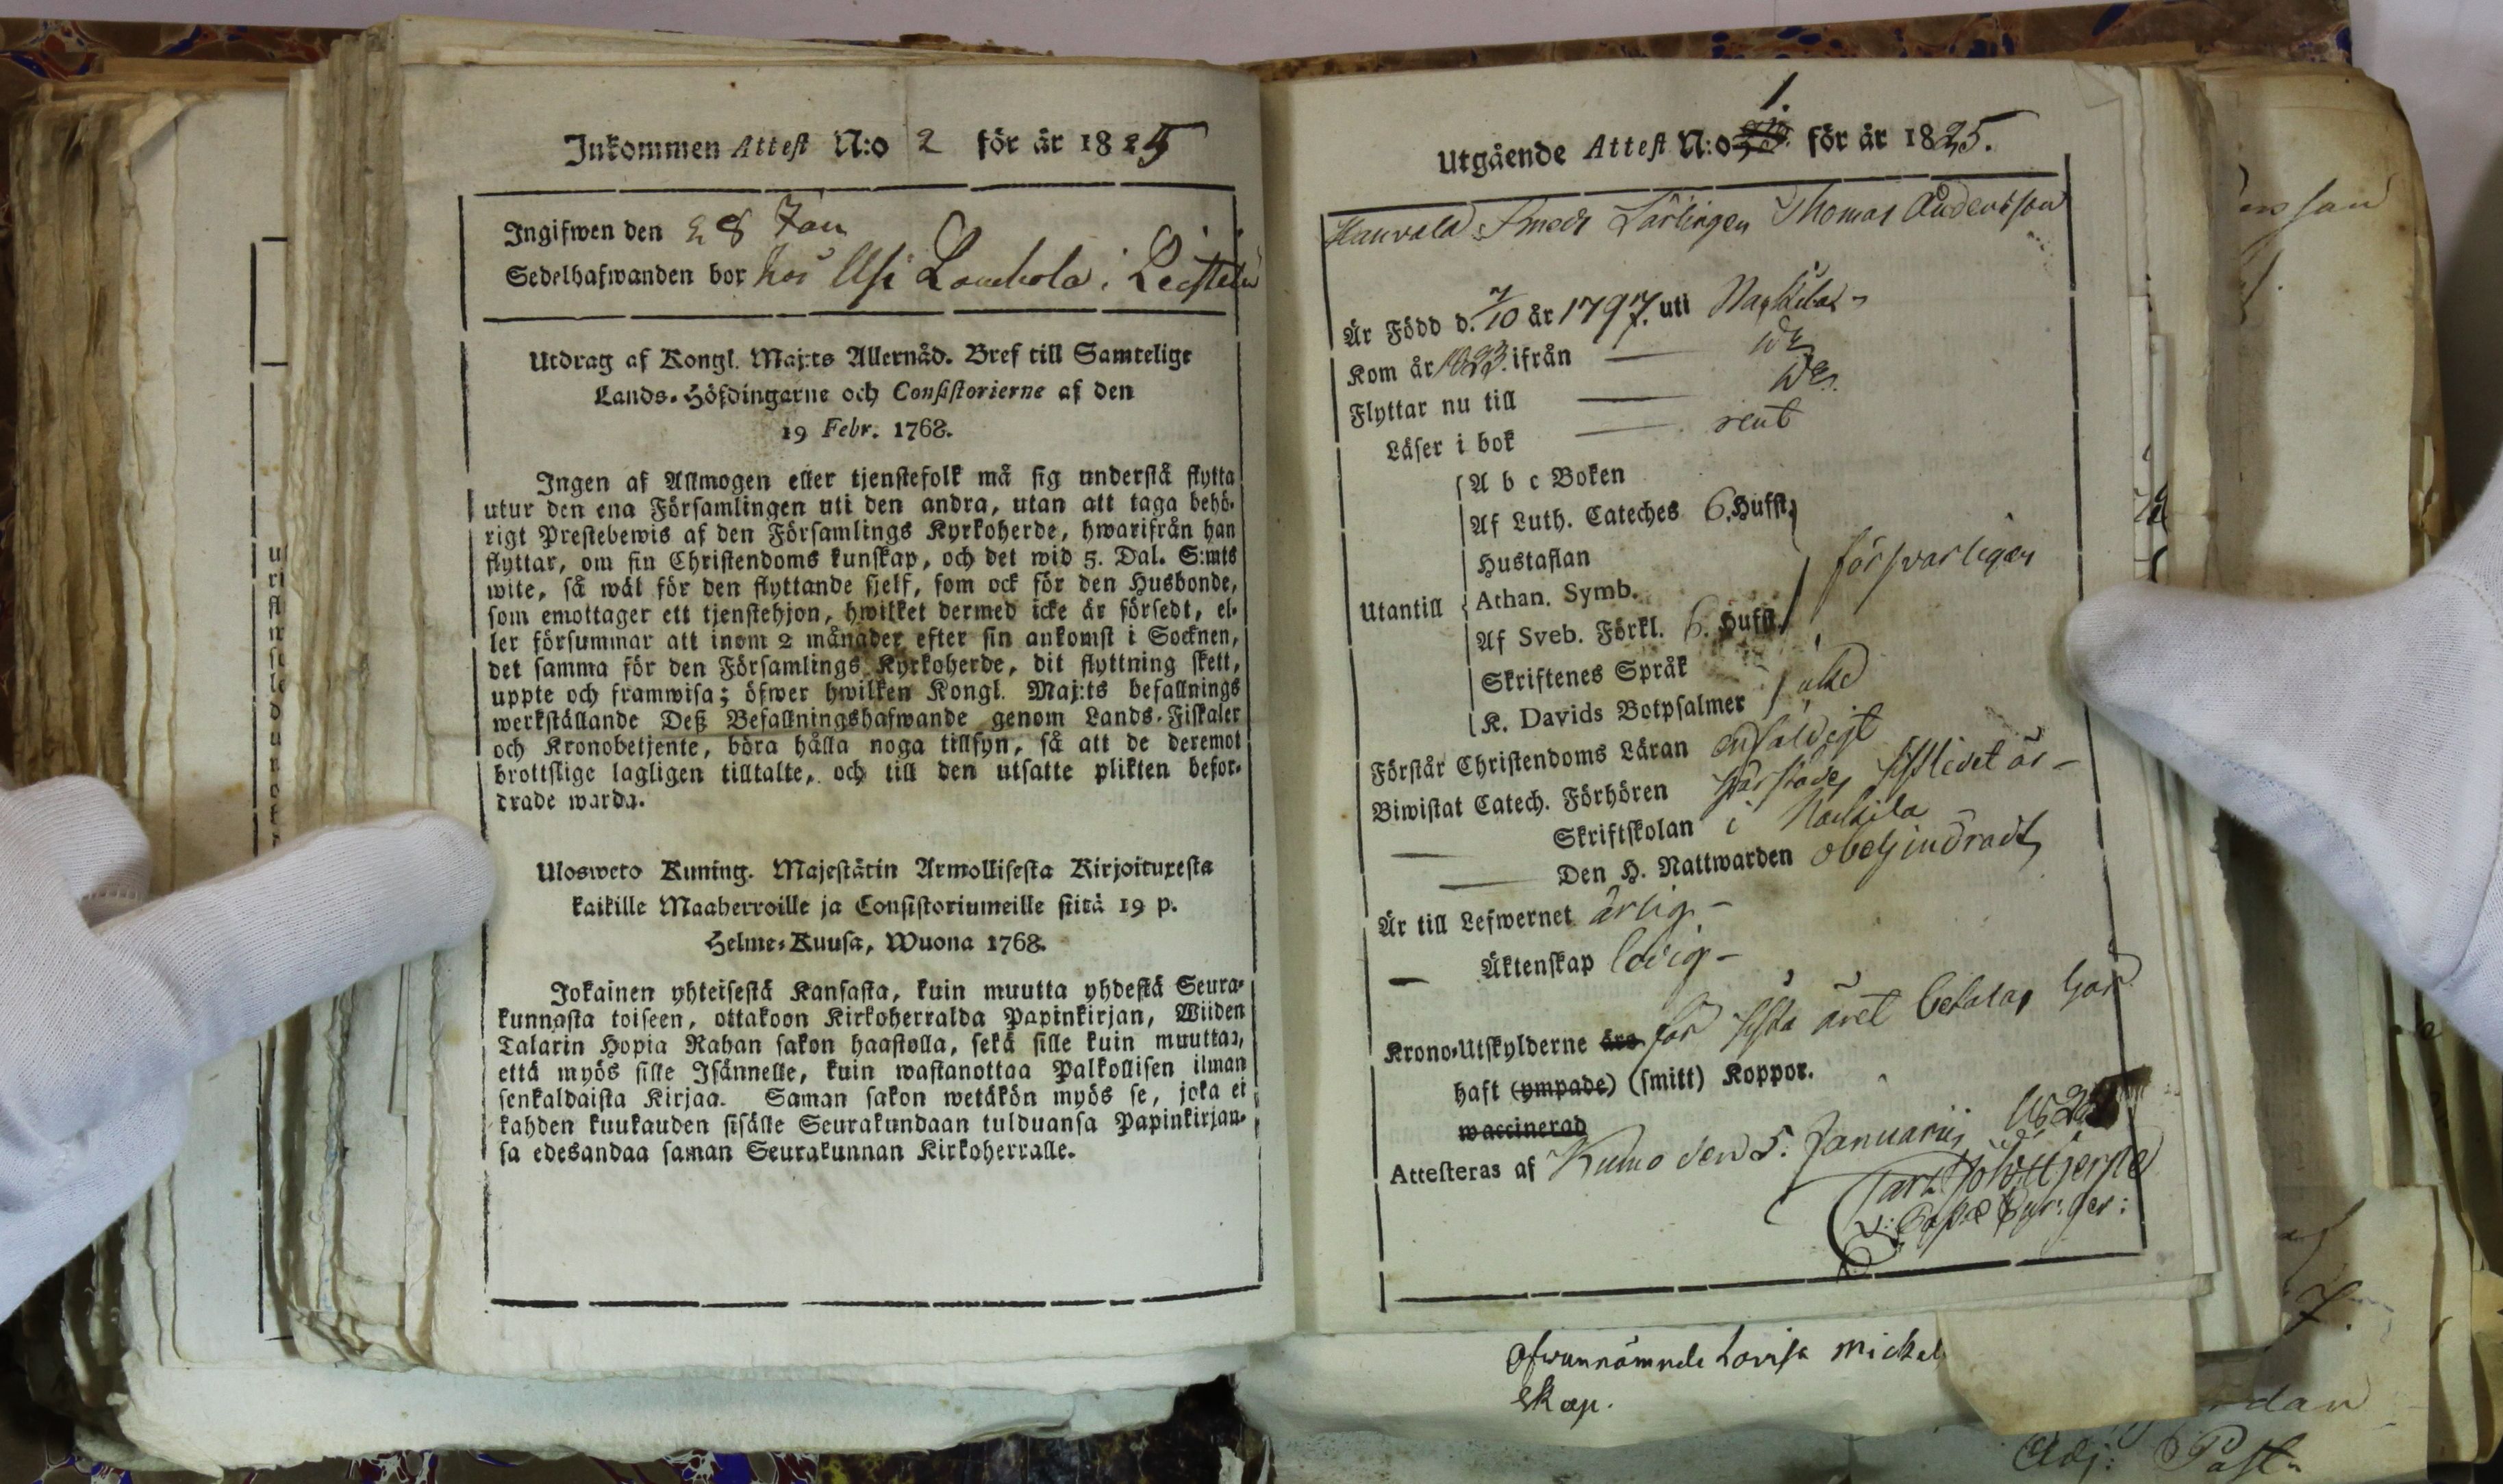 Inkommen Attest N:o 2 för år 1825
Ingifwen den 28 Jan
Sedelhafwanden bor hos Usi Lombola i Leistilä
Utdrag af Kongl. Maj:ts Allernåd. Bref till Samtelige
Lands-Höfdingarne och Consistorierne af den
19 Febr. 1768.
Ingen af Allmogen eller tjenstefolk må sig understå flytta
utur den ena Församlingen uti den andra, utan att taga behö-
rigt Prestebewis af den Församlings Kyrkoherde, hwarifrån han
flyttar, om sin Christendoms kunskap, och det wid 5. Dal. S:mts
wite, så wäl för den flyttande sjelf, som ock för den Husbonde,
som emottager ett tjenstehjon, hwilket dermed icke är försedt, el-
ler försummar att inom 2 månader efter sin ankomst i Socknen,
det samma för den Församlings Kyrkoherde, dit flyttning skett,
uppte och framwisa; öfwer hwilken Kongl. Maj:ts befallnings
werkställande Deß Befallningshafwande genom Lands-Fiskaler
och Kronobetjente, böra hålla noga tillsyn, så att de deremot
brottslige lagligen tilltalte, och till den utsatte plikten befor-
drade warda.
Ulosweto Kuning. Majestätin Armollisesta Kirjoituxesta
kaikille Maaherroille ja Consistoriumeille siitä 19 p.
Helme-Kuusa, Wuona 1768.
Jokainen yhteisestä Kansasta, kuin muutta yhdestä Seura-
kunnasta toiseen, ottakoon Kirkoherralda Papinkirjan, Wiiden
Talarin Hopia Rahan sakon haastolla, sekä sille kuin muuttaa,
että myös sille Isännelle, kuin wastanottaa Palkollisen ilman
senkaldaista Kirjaa. Saman sakon wetäkön myös se, joka ei
kahden kuukauden sisälle Seurakundaan tulduansa Papinkirjan-
sa edesandaa saman Seurakunnan Kirkoherralle.
1.
Utgående Attest N:o för år 1825.
Smeds Lärlingen Thomas Andersson
Är Född d. 7/10 år 1797. uti Nackila
Kom år 1823. ifrån
Flyttar nu till
Läser i bok rent
Utantill
A b c Boken
Af Luth. Cateches 6. Hufst.
Hustaflan
Athan. Symb.
försvarligen
Af Sveb. Förkl. 6. Hufst.
Skriftenes Språk
K. Davids Botpsalmer
Förstår Christendoms Läran enfaldigt
Biwistat Catech. Förhören härstädes sistlidet år
Skriftskolan i Nackila
Den H. Nattwarden obehindradt
Är till Lefwernet ärlig
Äktenskap ledig
Krono-Utskylderne äro för sista året betalas har
haft (ympade) (smitt) Koppor.
waccinerad
Attesteras af Kumo den 5. Januarii
ofwannämnde Lovisa Mickel
skap.
Adj: Past